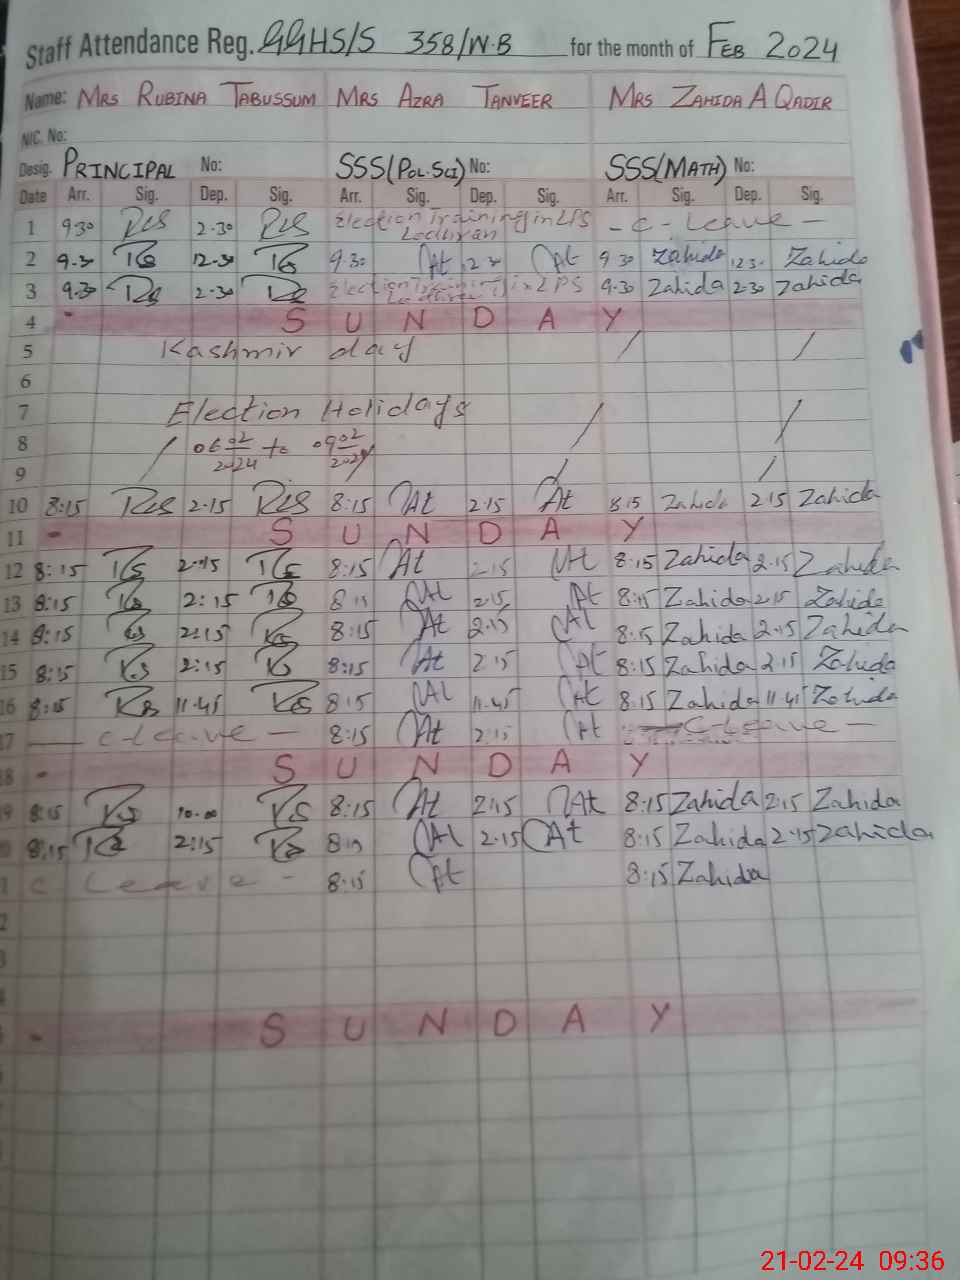 Staff Attendance Reg. GGHS/S 358/W.B for the month of FEB 2024
Name: MRS RUBINA TABUSSUM MRS AZRA TANVEER MRS ZAHIDA A QADIR
NIC. No:
Desig. PRINCIPAL No: SSS(POL.SCI) No: SSS(MATH) No:
Date Arr. Sig. Dep. Sig. Arr. Sig. Dep. Sig. Arr. Sig. Dep. Sig.
1 9.30 2.30 Election Training in LPS Lodhran - C - Leave -
2 9.30 12.30 9.30 At At 9 30 Zahida Zahida
3 9.30 2.30 Election Training in LPS 9.30 Zahida 2.30 Zahida
4 - S U N D A Y
5 Kashmir day / /
6
7 Election Holidays / /
8 / 06 02/2024 to 09 02/2024
9 / /
10 8:15 2.15 8:15 At 2.15 At 8:15 Zahida 2.15 Zahida
11 - S U N D A Y
12 8:15 2:15 8:15 At 2.15 At 8:15 Zahida 2.15 Zahida
13 8:15 2:15 8 15 At 2.15 At 8:15 Zahida 2.15 Zahida
14 8:15 2:15 8:15 At 2.15 At 8:15 Zahida 2.15 Zahida
15 8:15 2:15 8:15 At 2.15 At 8:15 Zahida 2.15 Zahida
16 8:15 11.45 8:15 At 11.45 At 8:15 Zahida 11.45 Zahida
17 — C-Leave — 8:15 At 2:15 At C-Leave —
18 - S U N D A Y
9 8:15 10.00 8:15 At 2:15 At 8:15 Zahida 2.15 Zahida
8:15 2:15 8:15 At 2.15 At 8:15 Zahida 2.15 Zahida
C Leave - 8:15 At 8:15 Zahida
- S U N D A Y
21-02-24 09:36